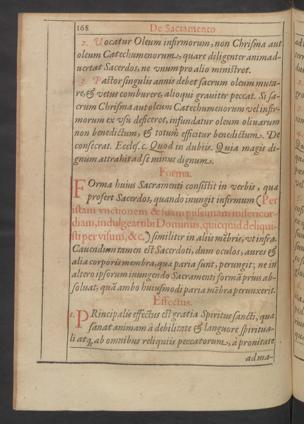 168 De Sacramento
2. Vocatur Oleum infirmorum, non Chrisma aut
oleum Catechumenorum, quare diligenter animad-
vertat Sacerdos, ne vnum pro alio ministret.
2. Pastor singulis annis debet sacrum oleum muta-
re, & vetus comburere, alioqui grauiter peccat. Si sa-
crum Chrisma aut oleum Catechumenorum vel infir-
morum ex vsu deficeret, infundatur oleum oliuarum
non benedictum, & totum efficitur benedictum. De
consecrat. Eccles. c. Quod in dubiis. Quia magis di-
gnum attrahit ad se minus dignum.
Forma.
FOrma huius Sacramenti consistit in verbis, quæ
profert Sacerdos, quando inungit infirmum (Per
istam vnctionem & suam piissimam misericor-
diam, indulgeat tibi Dominus, quicquid deliqui-
sti per visum, &c.) similiter in aliis mẽbris, vt infra.
Cauendum tamen est Sacerdoti, dum oculos, aures &
alia corporis membra, quæ paria sunt, perungit; ne in
altero ipsorum inungendo Sacramenti formã prius ab-
soluat, quã ambo huiusmodi paria mẽbra perunxerit.
Effectus.
1. PRincipalis effectus est gratia Spiritus sancti, quæ
sanat animam à debilitate & languore spiritua-
li atq, ab omnibus reliquiis peccatorum, à pronitate
ad ma-